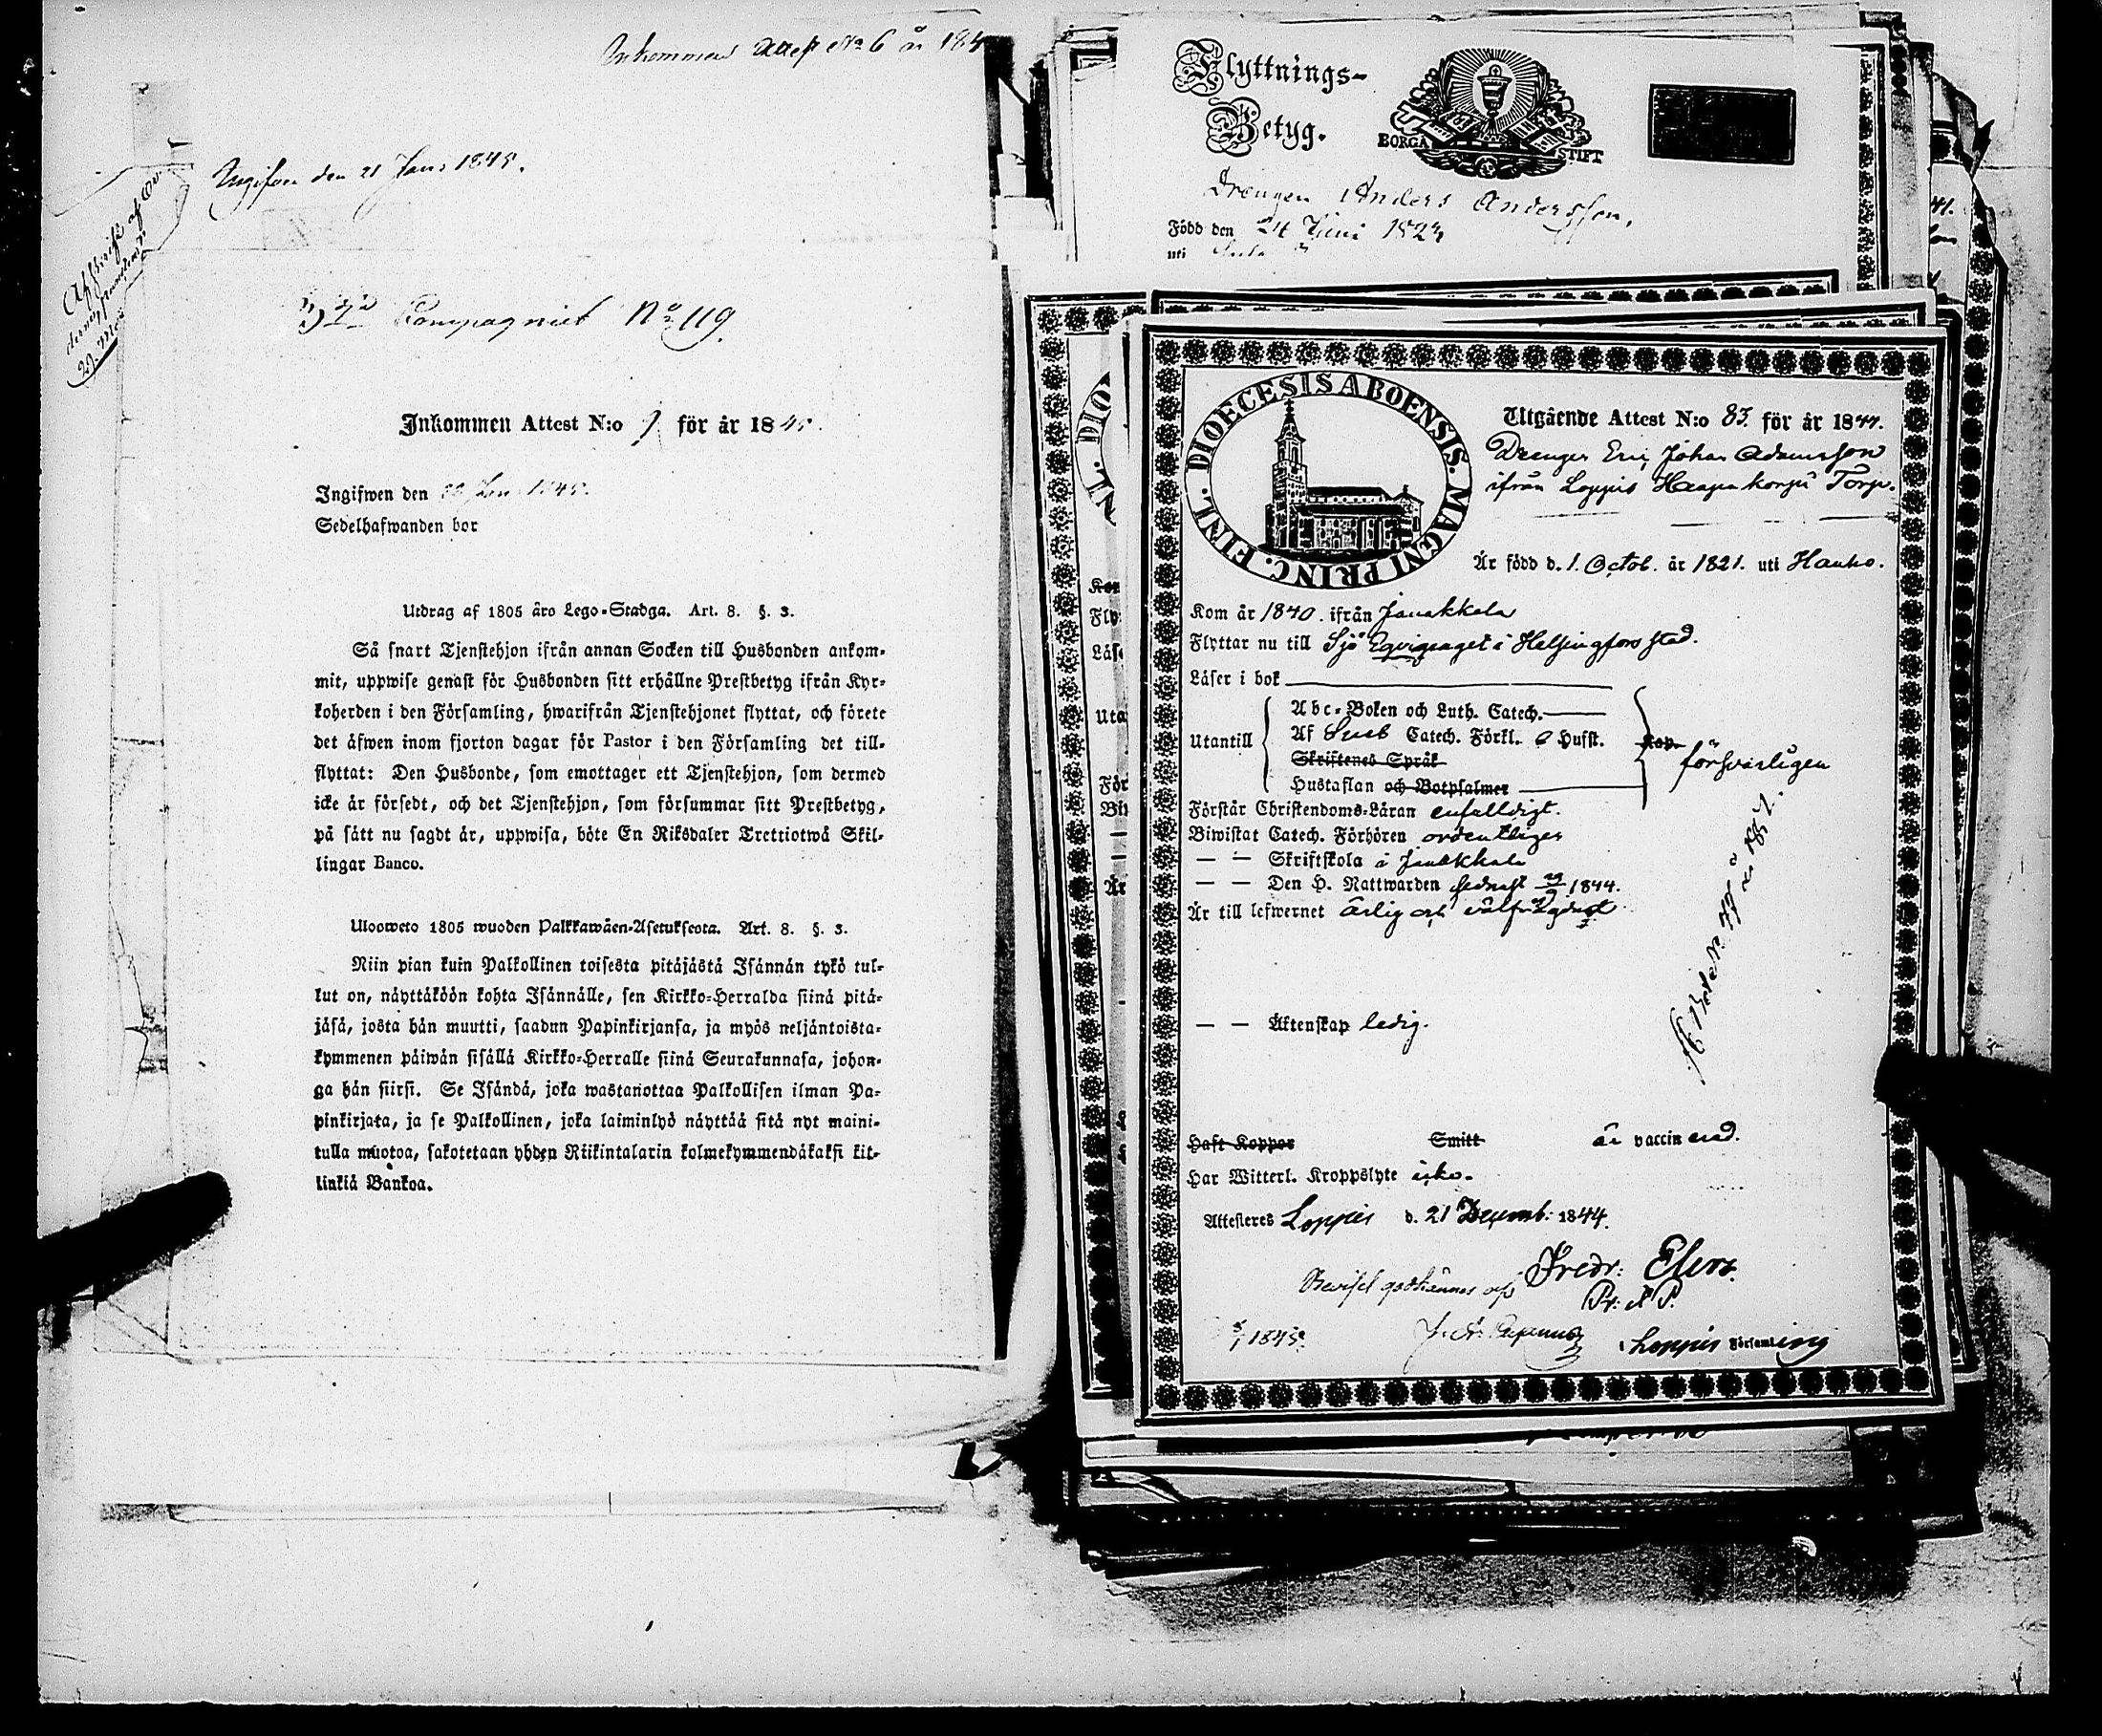 Inkommen Attest No 6 år 184
Ingifven den 21 Janu 1845.
Compagniet No 119.
Inkommen Attest N:o 7 för år 1845.
Ingifwen den Janu 1845.
Sedelhafwanden bor
Utdrag af 1805 åro Lego-Stadga. Art. 8. §. 3.
Så snart Tjenstehjon ifrån annan Socken till Husbonden ankom-
mit, uppwise genast för Husbonden sitt erhållne Prestbetyg ifrån Kyr-
koherden i den Församling, hwarifrån Tjenstehjonet flyttat, och förete
det äfwen inom fjorton dagar för Pastor i den Församling det till-
flyttat: Den Husbonde, som emottager ett Tjenstehjon, som dermed
icke är försedt, och det Tjenstehjon, som försummar sitt Prestbetyg,
på sätt nu sagdt är, uppwisa, böte En Riksdaler Trettiotwå Skil-
lingar Banco.
Uloosweto 1805 wuoden Palkkawäen-Asetuksesta. Art. 8. §. 3.
Niin pian kuin Palkollinen toisesta pitäjästä Isännän tykö tul-
lut on, näyttäköön kohta Isännälle, sen Kirkko-Herralda siinä pitä-
jäsä, josta hän muutti, saadun Papinkirjansa, ja myös neljäntoista-
kymmenen päiwän sisällä Kirkko-Herralle siinä Seurakunnasa, johon-
ga hän siirsi. Se Isändä, joka wastanottaa Palkollisen ilman Pa-
pinkirjata, ja se Palkollinen, joka laiminlyö näyttää sitä nyt maini-
tulla muotoa, sakotetaan yhden Riikintalarin kolmekymmendäkaksi kil-
linkiä Bankoa.
Flyttnings-
Betyg.
BORGÅ STIFT
Drengen Anders Andersson,
Född den 24 Juni 1823
uti
DIOECESIS ABOENSIS. MAGNI PRINC. FINL.
Utgående Attest N:o 83 för år 1844.
Drengen Eric Johan Adamsson
ifrån Loppis Haapakorpi Torp.
Är född d. 1. Octob. år 1821. uti Hauho.
Kom år 1840. ifrån Janakkala
Flyttar nu till Sjö Eqvipaget i Helsingfors stad.
Läser i bok
Abc-Boken och Luth. Catech.
Utantill Af Sveb Catech. Förkl. o Husst. Kap. försvarligen
Skriftenes Språk
Hustaflan och Botpsalmer
Förstår Christendoms-Läran enfalldigt.
Biwistat Catech. Förhören ordentligen
— — Skriftskola i Janakkala
— — Den H. Nattwarden sednast 29/9 1844.
Är till lefwernet ärlig och välfrägdad
— — Äktenskap ledig.
Haft Koppor Smitt är vaccinerad.
Har Witterl. Kroppslyte icke.
Attesteres Loppis d. 21 Decemb: 1844.
Fredr: Elers.
Pr: & P.
1845.
Loppis Församling